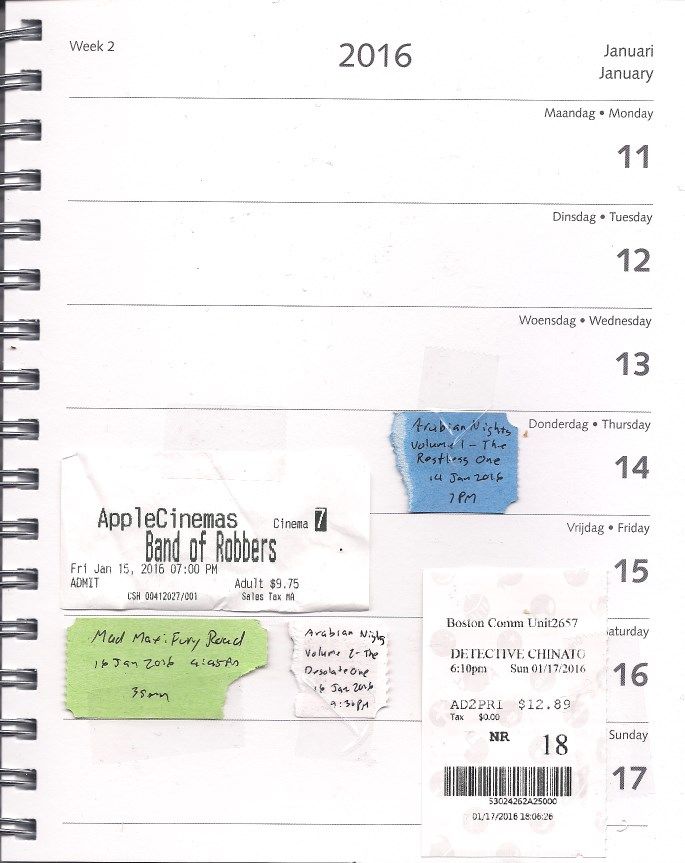 Week 2
2016
Januari
January
Maandag • Monday
11
Dinsdag • Tuesday
12
Woensdag • Wednesday
13
Donderdag • Thursday
14
Arabian Nights
Volume 1 - The
Restless One
14 Jan 2016
7PM
Vrijdag • Friday
15
AppleCinemas
Cinema 7
Band of Robbers
Fri Jan 15, 2016 07:00 PM
ADMIT
Adult $9.75
CSH 00412027/001
Sales Tax MA
aturday
16
Mad Max: Fury Road
16 Jan 2016
35mm
Arabian Nights
Volume 2 - The
Desolate One
16 Jan 2016
9:30PM
Sunday
17
Boston Comm Unit2657
DETECTIVE CHINATO
6:10pm Sun 01/17/2016
AD2PRI $12.89
Tax $0.00
NR 18
53024262A25000
01/17/2016 18:06:26